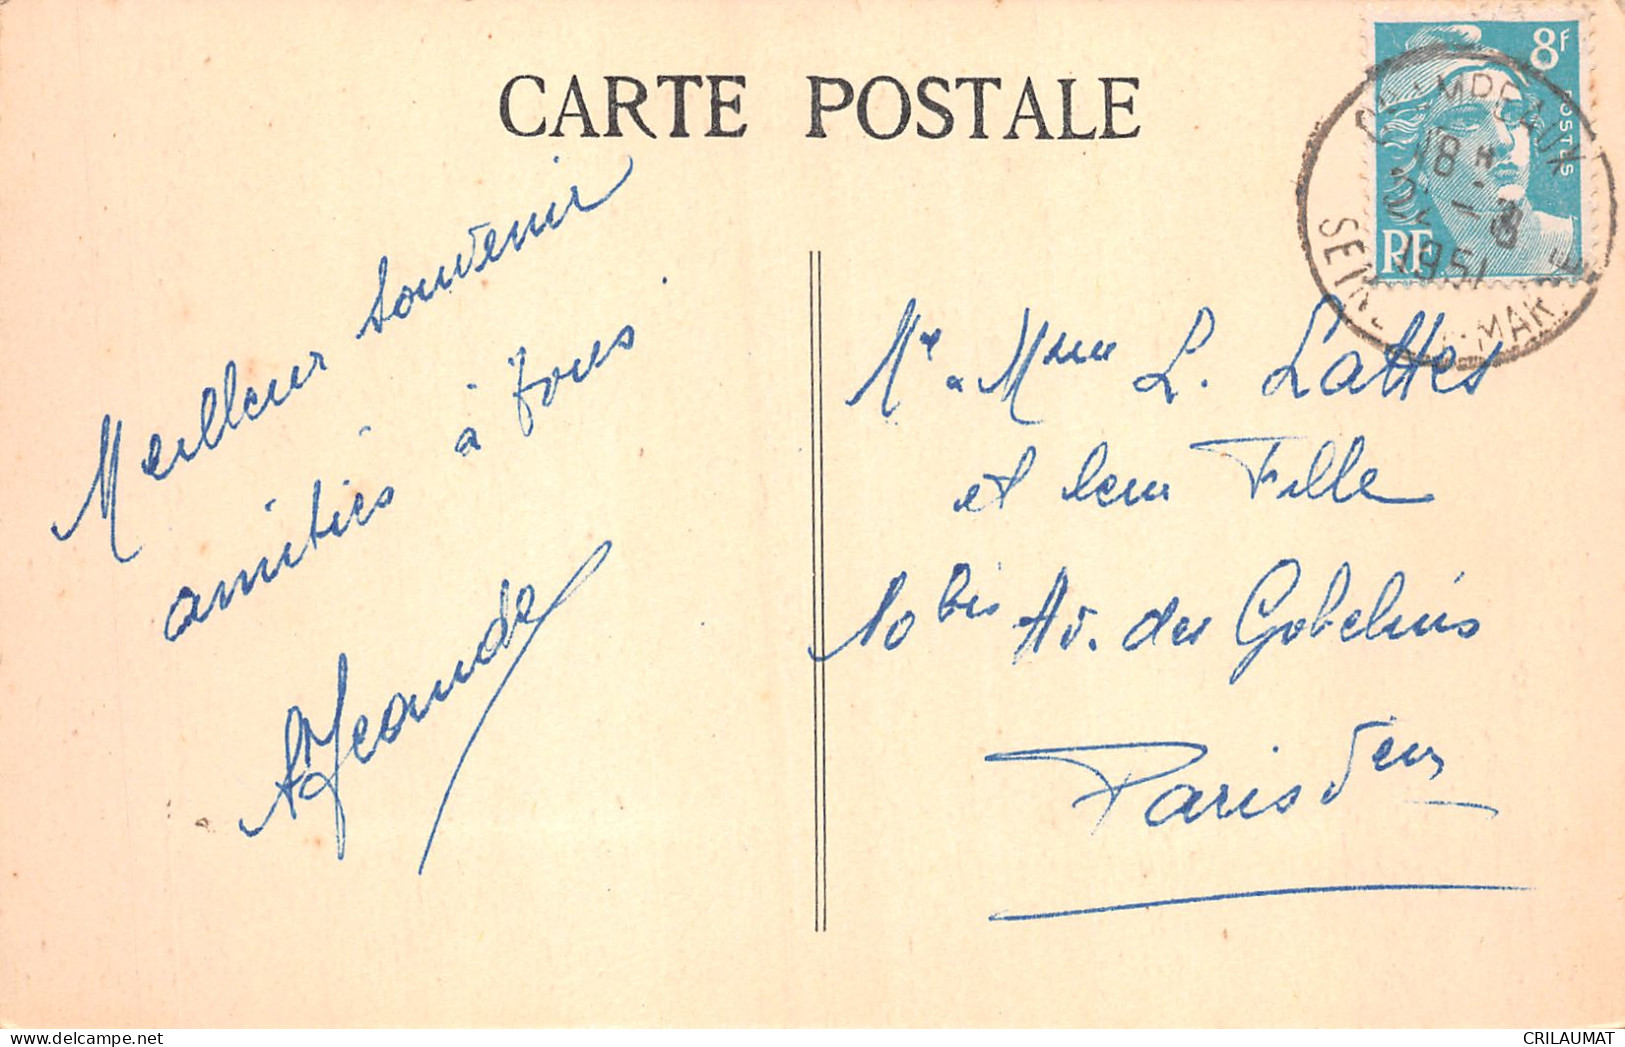 CARTE POSTALE
8F
POSTES
RF
CHAMPEAUX
18 H
1951
SEINE-ET-MARNE
Meilleur souvenir
amitiés à tous.
Mr & Mme L. Lattes
et leur Fille
10 bis Av. des Gobelins
Paris Vem
CRILAUMAT